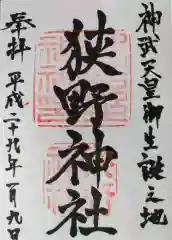 神武天皇御生誕之地
狭野神社
奉拝
平成二十九年一月九日